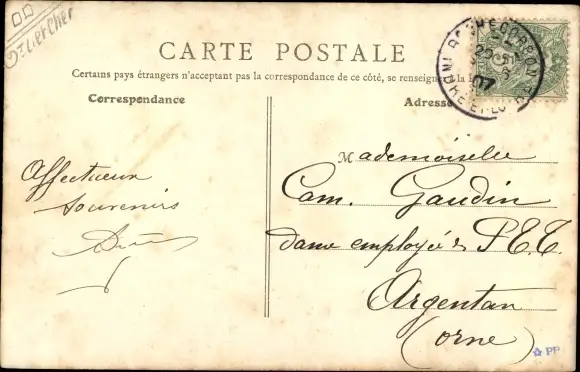 Dt Lir et Cher
CARTE POSTALE
Certains pays étrangers n'acceptent pas la correspondance de ce côté, se renseigner à la
Correspondance
Adresse
ROCHECORBON
INDRE-ET-LO
07
Affectueux
souvenirs
Mademoiselle
Cam. Gaudin
dame employée P.E.T.
Argentan
(orne)
PP